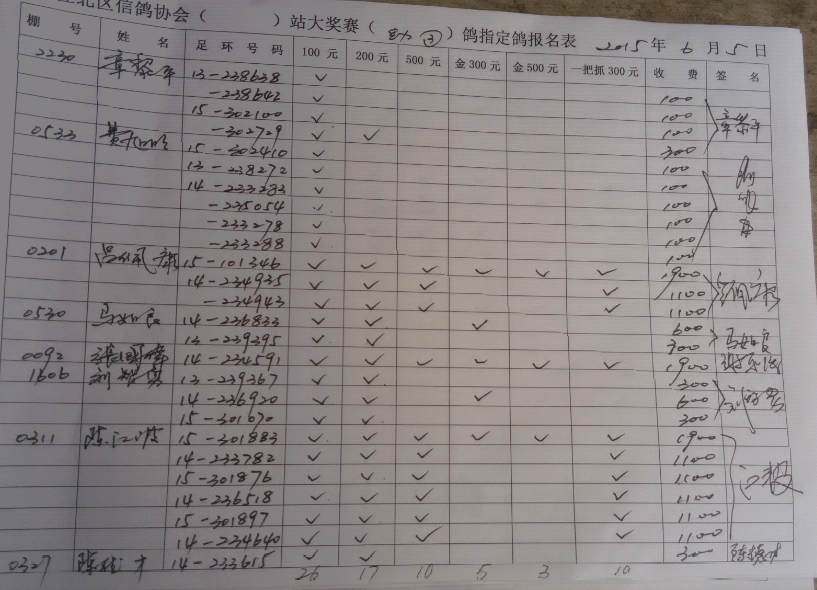 北区信鸽协会（ ）站大奖赛（ ③）鸽指定鸽报名表 2015年 6 月 5 日
棚 号 姓 名 足 环 号 码 100 元 200 元 500 元 金300元 金500元 一把抓300元 收 费 签 名
2230 章黎平 13-238638 ✓ 100
-238642 ✓ 100
15-302100 ✓ 100
0533 -302729 ✓ ✓ 300
15-302410 ✓ 100
13-238272 ✓ 100
14-233283 ✓ 100
-235054 ✓ 100
-233278 ✓ 100
-233288 ✓ 100
0201 15-101346 ✓ ✓ ✓ ✓ ✓ ✓ 1900
14-234935 ✓ ✓ ✓ ✓ 1100
-234943 ✓ ✓ ✓ ✓ 1100
0530 马如良 14-236833 ✓ ✓ ✓ 600
13-239395 ✓ ✓ 300
0092 14-234591 ✓ ✓ ✓ ✓ ✓ ✓ 1900
1606 刘智勇 13-239367 ✓ ✓ 300
14-236920 ✓ ✓ ✓ 600
15-301070 ✓ ✓ 300
0311 陈江波 15-301883 ✓ ✓ ✓ ✓ ✓ ✓ 1900 江波
14-233782 ✓ ✓ ✓ ✓ 1100
15-301876 ✓ ✓ ✓ ✓ 1100
14-236518 ✓ ✓ ✓ ✓ 1100
15-301897 ✓ ✓ ✓ ✓ 1100
14-234640 ✓ ✓ ✓ ✓ 1100
0327 14-233615 ✓ ✓ 300
26 17 10 5 3 10